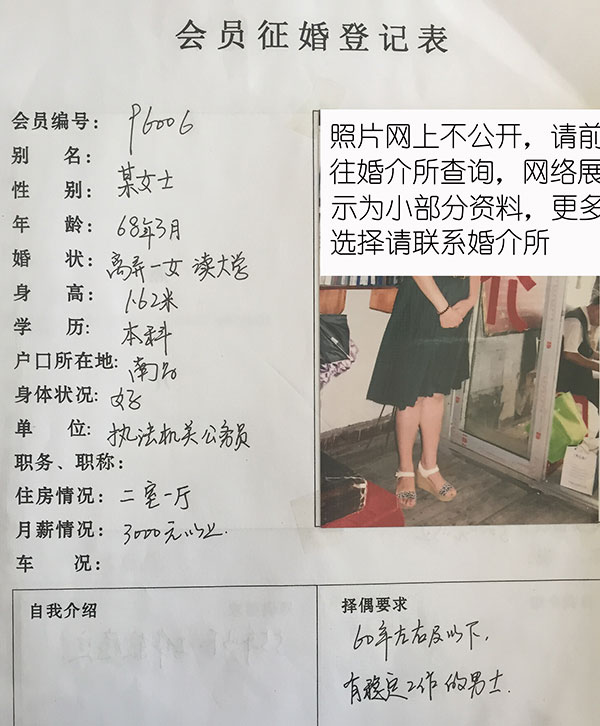 会员征婚登记表
会员编号: P6006
别 名:
性 别: 某女士
年 龄: 68年3月
婚 状: 离异一女 读大学
身 高: 1.62米
学 历: 本科
户口所在地:
身体状况: 好
单 位: 执法机关公务员
职务、职称:
住房情况: 二室一厅
月薪情况: 3000元以上.
车 况:
照片网上不公开，请前
往婚介所查询，网络展
示为小部分资料，更多
选择请联系婚介所
自我介绍
择偶要求
60年左右及以下,
有稳定工作的男士.